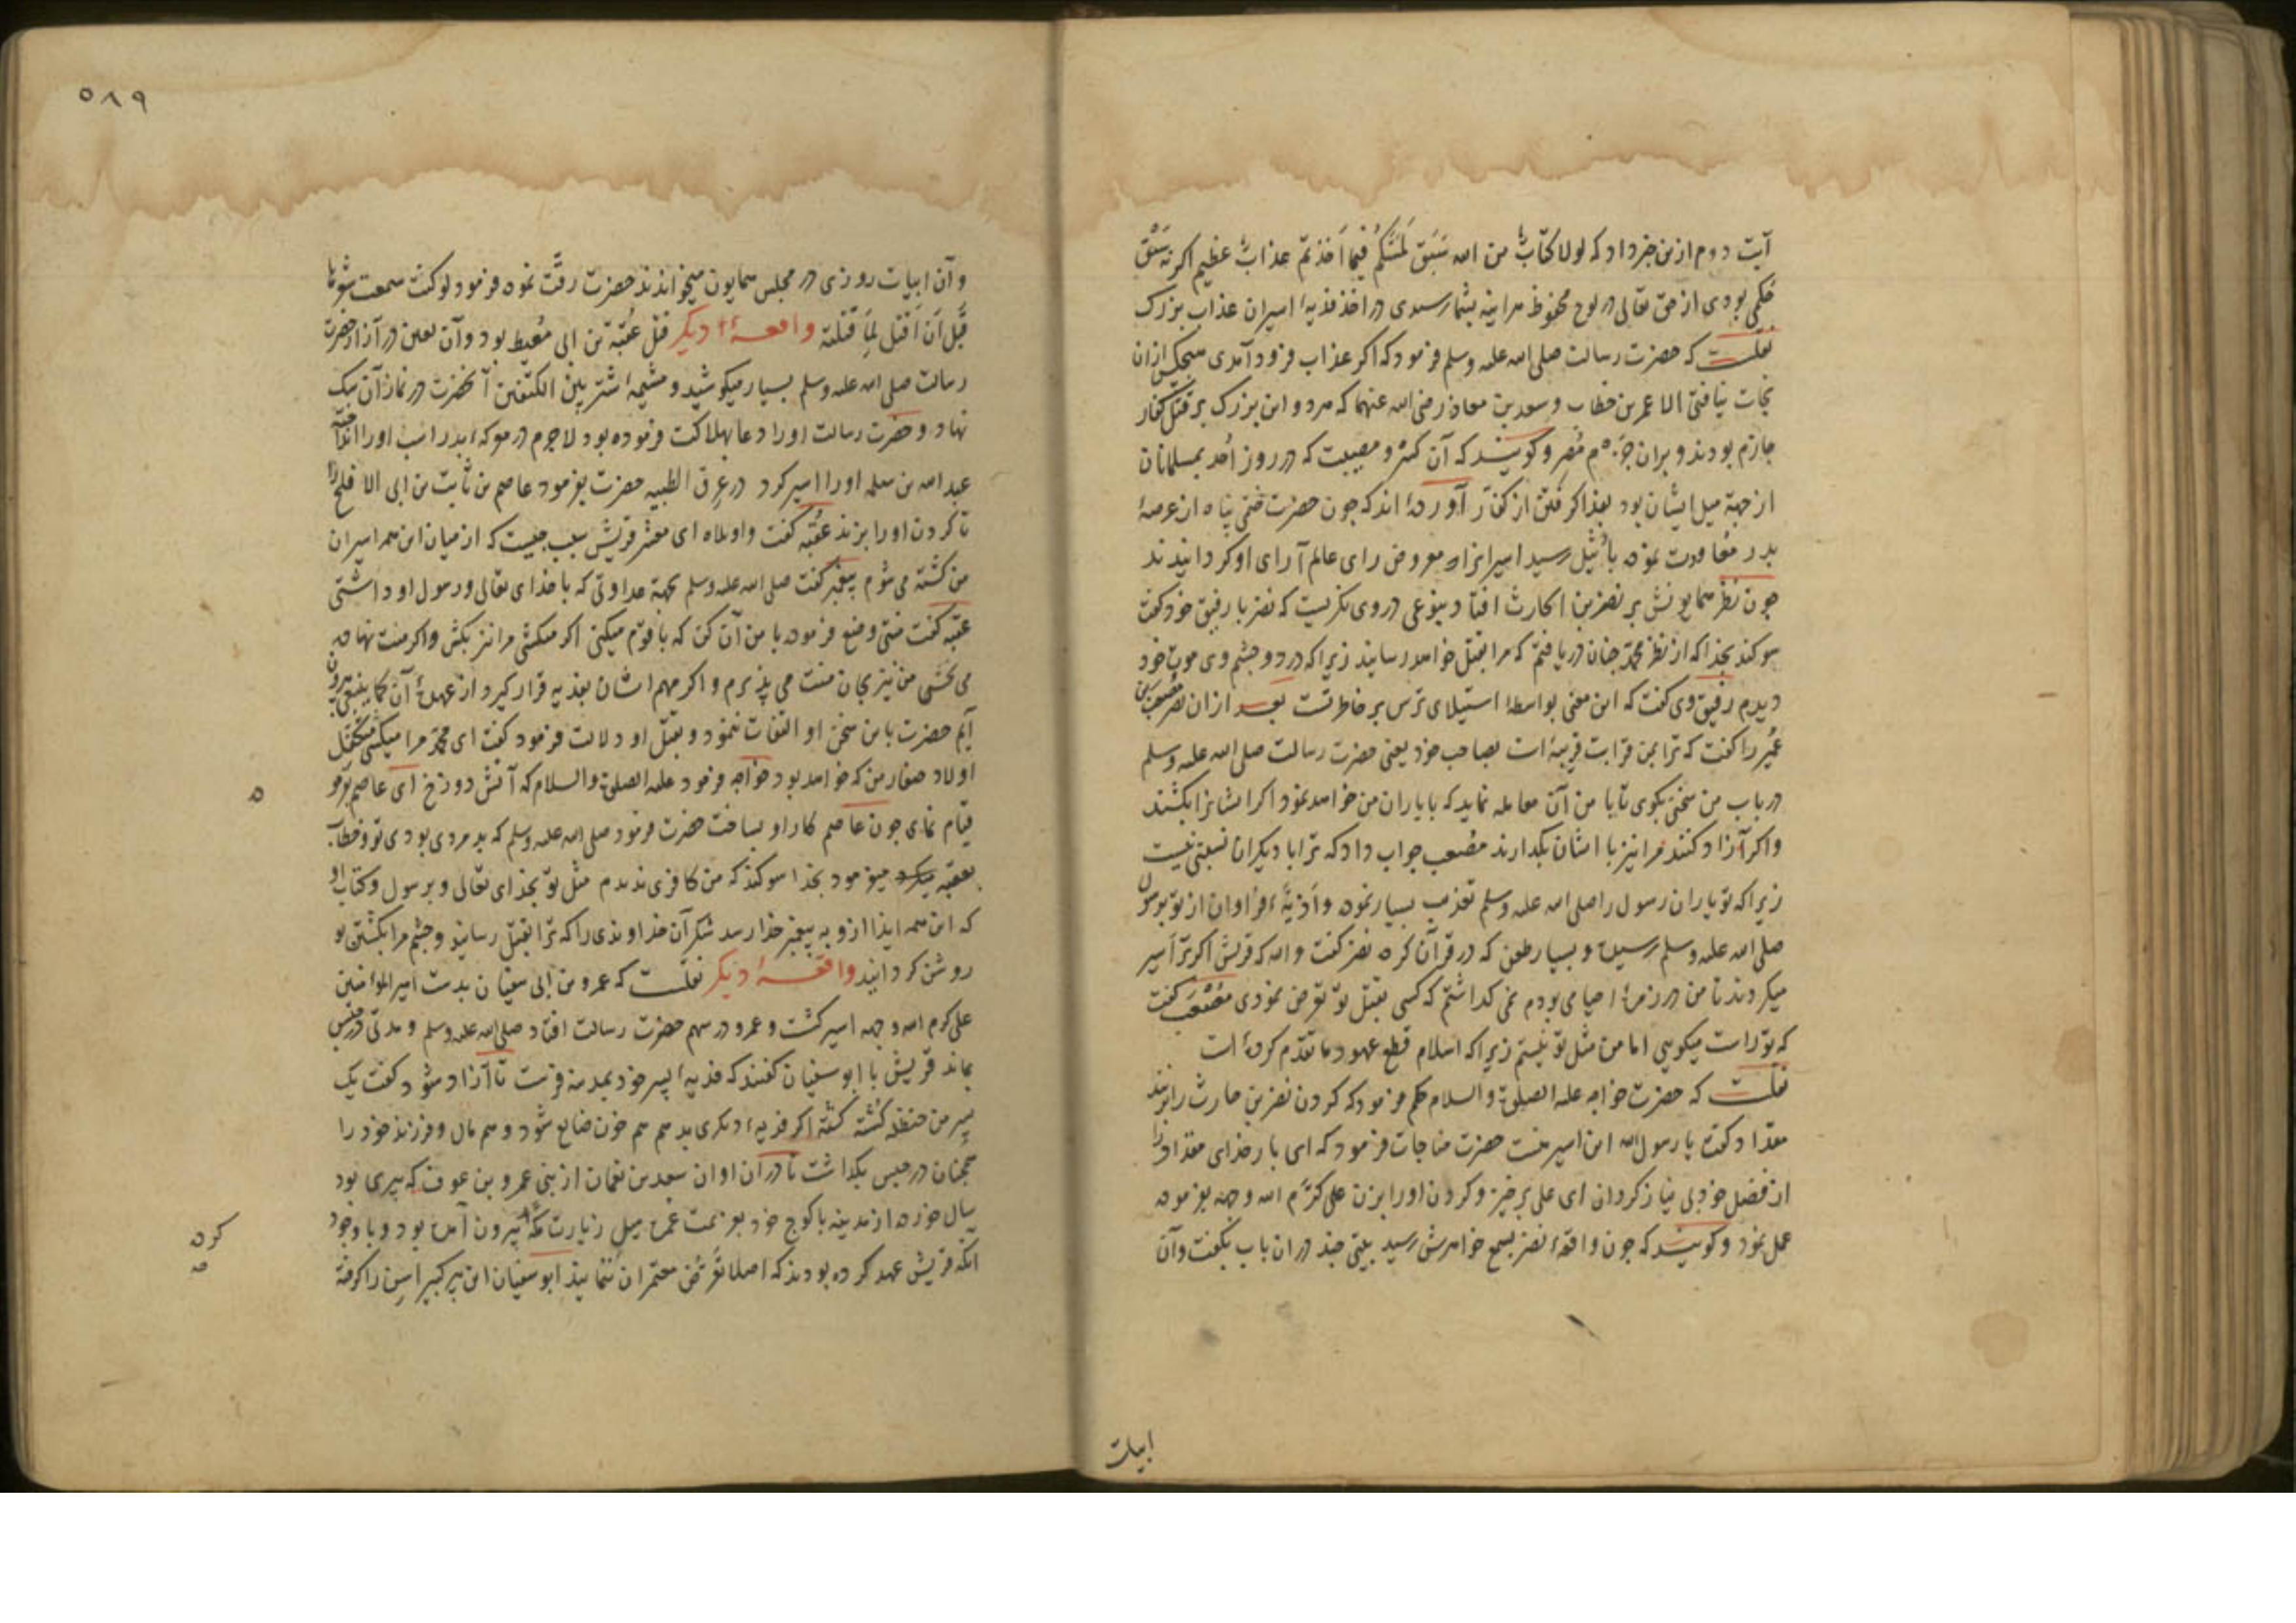 آیت دوم ازین خبر داد که لولا کتابٌ من الله سَبَقَ لَمَسَّکُم فیما اَخَذتم عذابٌ عظیم اکر نه سَبق
حکمی بودی از حق تعالی در لوح محفوظ هر اینه بشما رسیدی در اخذ فدیهٔ اسیران عذاب بزرک
نقلست که حضرت رسالت صلی الله علیه وسلم فرمود که اکر عذاب فرود آمدی هیچکس ازان
نجات نیافتی الا عمر بن خطاب وسعد بن معاذ رضی الله عنهما که هر دو این بزرک بر قتل کفار
جازم بودند و بران مُصر وکویند که آن کسر و مصیبت که در روز اُحد بمسلمانان
از جهة میل ایشان بود بفدا کرفتن از کفار آورده اند که جون حضرت ختمی پناه از عرصهٔ
بدر معاودت نموده باُثیل رسید اسیرانرا معروض رای عالم آرای او کردانیدند
جون نظر همایونش بر نضر بن الحارث افتاد بنوعی در وی نکریست که نضر با رفیق خود کفت
سوکند بخدا که از نظر محمد جنان دریافتم که مرا بقتل خواهد رسانید زیرا که در دو جشم وی موت خود
دیدم رفیق وی کفت که این معنی بواسطهٔ استیلای ترس بر خاطر تست بعد ازان نضر مصعب بن
عُمیر را کفت که ترا بمن قرابت قریبهٔ است بصاحب خود یعنی حضرت رسالت صلی الله علیه وسلم
در باب من سخنی بکوی تا با من آن معامله نماید که با یاران من خواهد نمود اکر ایشانرا بکشند
واکر آزاد کنند مرا نیز با ایشان بکذارند مُصعب جواب داد که ترا با دیکران نسبتی نیست
زیرا که تو یاران رسول را صلی الله علیه وسلم تعذیب بسیار نموده واَذیةٔ فراوان از تو برسول
صلی الله علیه وسلم رسیده و بسیار طعن که در قرآن کرده نضر کفت والله که قریش اکر ترا اسیر
میکردند تا من در زمرهٔ احیا می بودم نمی کذاشتم که کسی بقتل تو تعرض نمودی مُصْعَب کفت
که تو راست میکویی اما من مثل تو نیستم زیرا که اسلام قطع عهود ما تقدم کرده است
نقلست که حضرت خواجه علیه الصلوة والسلام حکم فرمود که کردن نضر بن حارث را بزنند
مقداد کفت یا رسول الله این اسیر منست حضرت مناجات فرمود که ای بار خدای مقداد را
از فضل خود بی نیاز کردان ای علی برخیز و کردن او را بزن علی کرّم الله وجهه بفرموده
عمل نمود وکویند که جون واقعهٔ نضر بسمع خواهرش رسید بیتی جند دران باب بکفت وآن
ابیات
٥٨٩
وآن ابیات روزی در مجلس همایون میخواندند حضرت رقّت نموده فرمود لو کنت سمعت شعرها
قبل اَن اَقتل لِمَا قتلته واقعهٔ دیکر قتل عُقبة بن ابی مُعیط بود وآن لعین در آزار حضرت
رسالت صلی الله علیه وسلم بسیار میکوشید و مشیمهٔ اشتر بین الکتفین آنحضرت در نماز آن سک
نهاد وحضرت رسالت اورا دعا بهلاکت فرموده بود لاجرم در معرکهٔ بدر اسب اورا انداخته
عبد الله بن سلمه اورا اسیر کرد در عِرق الظبیه حضرت بفرمود عاصم بن ثابت بن ابی الاقلح را
تا کردن اورا بزند عُقبه کفت واویلاه ای معشر قریش سبب جیست که از میان این همه اسیران
من کشته می شوم پیغمبر کفت صلی الله علیه وسلم بجهة عداوتی که با خدای تعالی ورسول او داشتی
عقبه کفت منتی وضع فرموده با من آن کن که با قوم میکنی اکر میکشی مرا نیز بکش واکر منت نهاده
می بخشی من نیز بجان منت می پذیرم واکر مهم ایشان بفدیه قرار کیرد از عهدهٔ آن کما ینبغی بیرون
آیم حضرت باین سخن او التفات ننمود وبقتل او دلالت فرمود کفت ای محمد مرا میکشی متکفل
اولاد صغار من که خواهد بود خواجه فرمود علیه الصلوة والسلام که آتش دوزخ ای عاصم
قیام نمای جون عاصم کار او بساخت حضرت فرمود صلی الله علیه وسلم که بد مردی بودی تو وخطاب
بعقبه میکرد میفرمود بخدا سوکند که من کافری ندیدم مثل تو بخدای تعالی و برسول وکتاب او
که این همه ایذا ازو به پیغمبر خدا رسد شکر آن خداوندی را که ترا بقتل رسانید وجشم مرا بکشتن تو
روشن کردانید واقعهٔ دیکر نقلست که عمرو بن ابی سفیان بدست امیر المؤمنین
علی کرم الله وجهه اسیر کشت وعمرو در سهم حضرت رسالت افتاد صلی الله علیه وسلم ومدتی در حبس
بماند قریش با ابو سفیان کفتند که فدیهٔ پسر خود بمدینه فرست تا آزاد شود کفت یک
پسر من حنظله کشته کشته اکر فدیهٔ دیکری بدهم هم خون ضایع شود وهم مال وفرزند خود را
همجنان در حبس بکذاشت تا دران اوان سعد بن نعمان از بنی عمرو بن عوف که پیری بود
سال خورده از مدینه با کوج خود بعزیمت عمره زیارت مکه بیرون آمده بود وبا وجود
انکه قریش عهد کرده بودند که اصلا تعرض معتمران ننمایند ابو سفیان این پیر کبیر اسن را کرفته
ه
کرده
صه